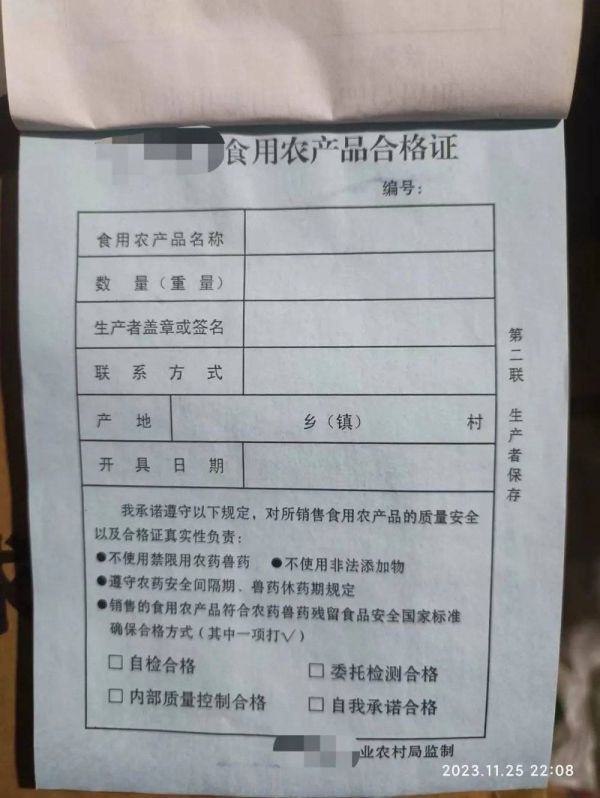 食用农产品合格证
编号：
食用农产品名称
数 量（重 量）
生产者盖章或签名
联 系 方 式
产 地 乡（镇） 村
开 具 日 期
第二联 生产者保存
我承诺遵守以下规定，对所销售食用农产品的质量安全
以及合格证真实性负责：
●不使用禁限用农药兽药 ●不使用非法添加物
●遵守农药安全间隔期、兽药休药期规定
●销售的食用农产品符合农药兽药残留食品安全国家标准
确保合格方式（其中一项打√）
□ 自检合格 □ 委托检测合格
□ 内部质量控制合格 □ 自我承诺合格
业农村局监制
2023.11.25 22:08